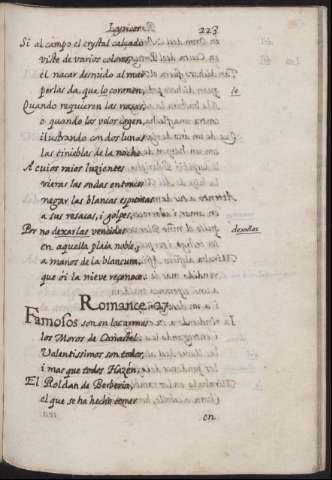 Lyricos. 223
Si al campo el crystal calçado
viste de varios colores,
el nacar desnudo al mar
perlas da, que lo coronen, lo
Quando requieren las nasas,
o quando los volos cogen,
ilustrando con dos lunas
las tinieblas de la noche
A cuios raios luzientes
vieras las ondas entonces
negar las blancas espumas
a sus resacas, i golpes,
Por no dexarlas vencidas dexallas
en aquella plaia noble,
a manos de la blancura,
que oi la nieve reconoce.
Romance 27.
Famosos son en las armas
los Moros de Canastel
Valentissimos son todos,
i mas que todos Hazén,
El Roldan de Berberia,
el que se ha hecho temer
en